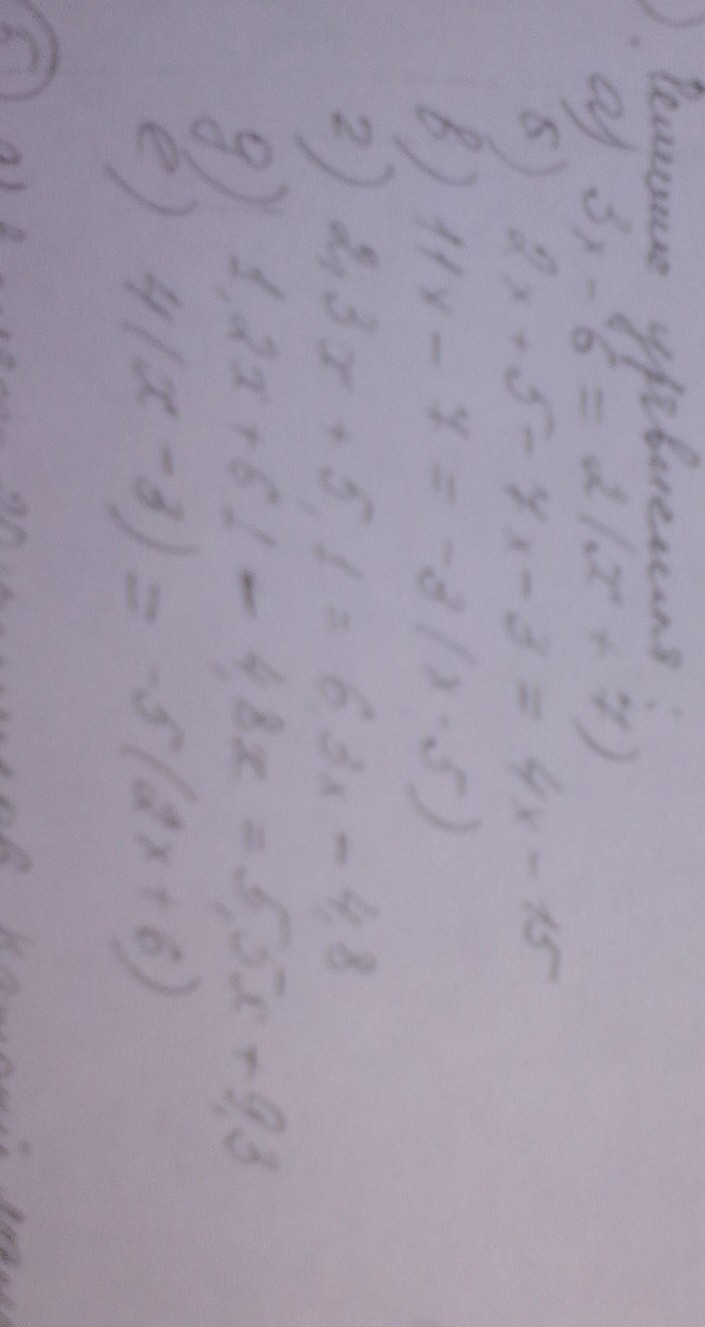 Решите уравнения:
а) 3x - 6 = 2(x + 7)
б) 2x + 5 - 7x - 3 = 4x - 15
в) 11x - 7 = -3(x - 5)
г) 2,3x + 5,1 = 6,3x - 4,8
д) 1,2x + 6,1 - 4,8x = 5,5x + 9,3
е) 4(x - 3) = -5(2x + 6)
5